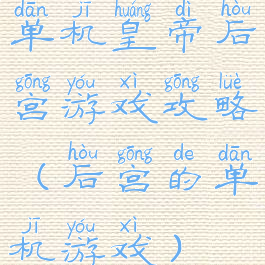 dān jī huáng dì hòu
单机皇帝后
gōng yóu xì gōng lüè
宫游戏攻略
hòu gōng de dān
（后宫的单
jī yóu xì
机游戏）